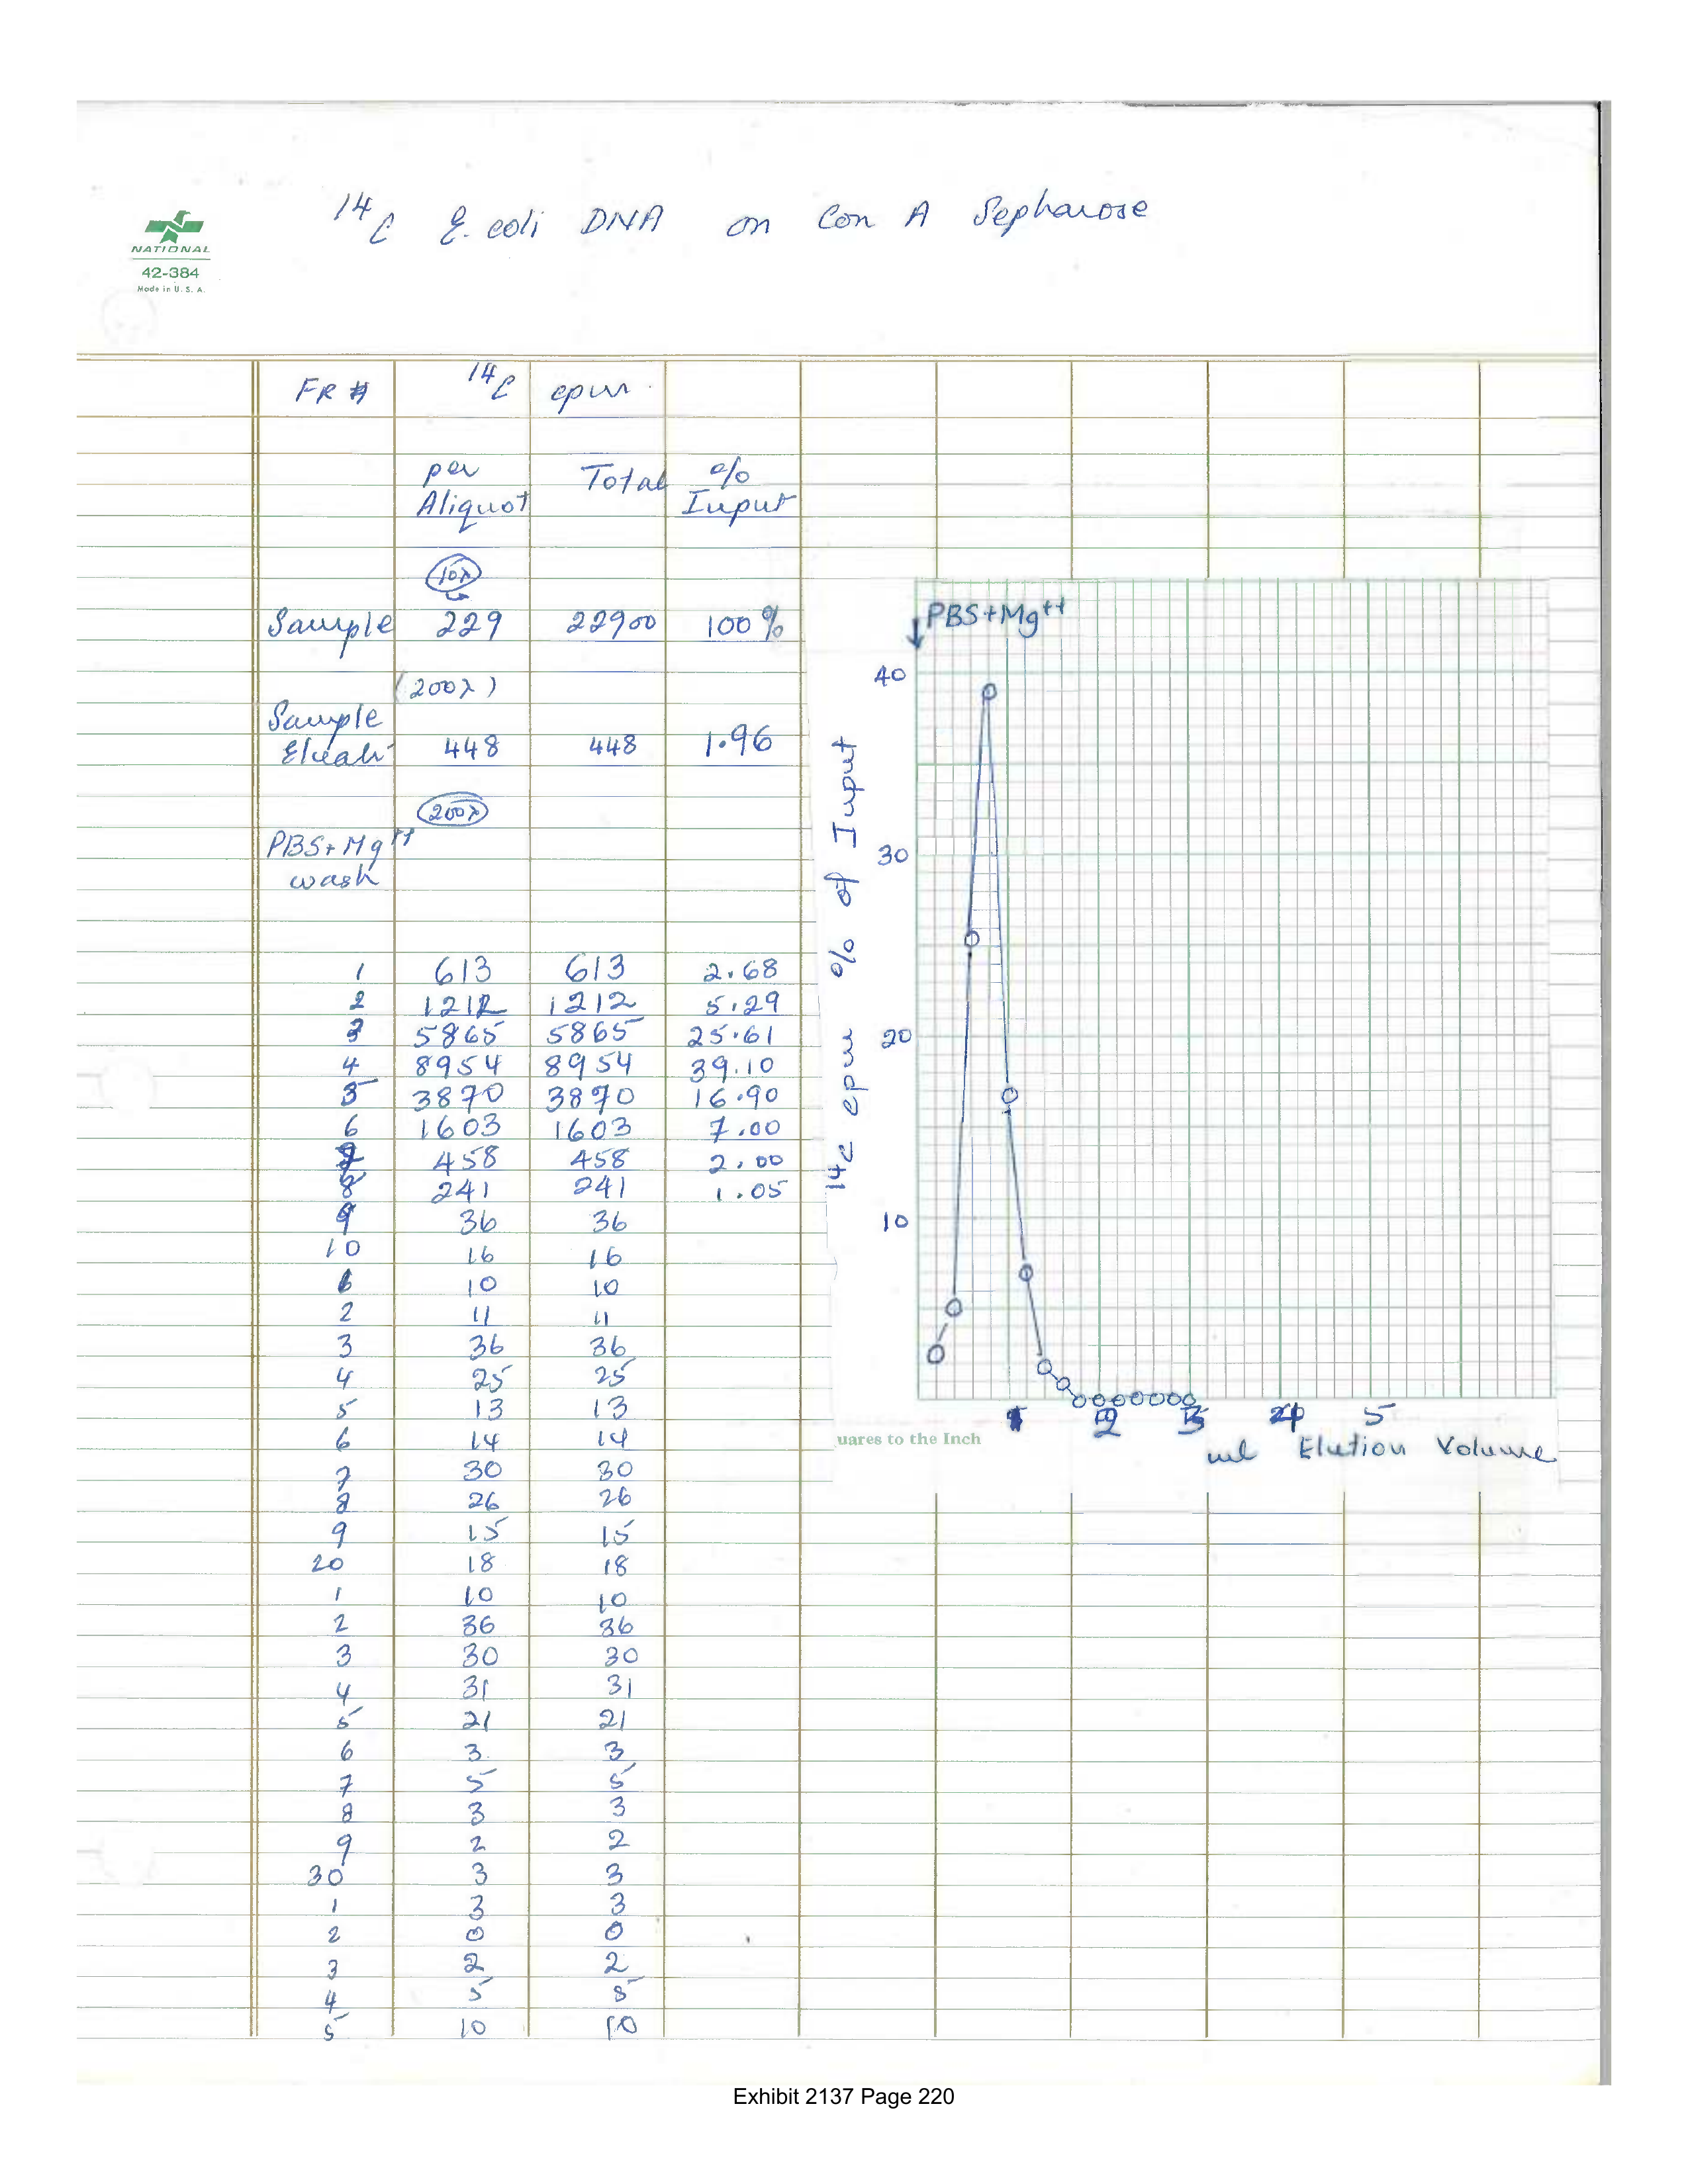 14C E. coli DNA on Con A Sepharose
NATIONAL
42-384
Made in U. S. A.
FR # 14C cpm
per Aliquot Total % Input
10λ
Sample 229 22900 100%
(200λ)
Sample
448 448 1.96
200λ
PBS+Mg++
wash
1 613 613 2.68
2 1212 1212 5.29
3 5865 5865 25.61
4 8954 8954 39.10
5 3870 3870 16.90
6 1603 1603 7.00
7 458 458 2.00
8 241 241 1.05
9 36 36
10 16 16
1 10 10
2 11 11
3 36 36
4 25 25
5 13 13
6 14 14
7 30 30
8 26 26
9 15 15
20 18 18
1 10 10
2 36 36
3 30 30
4 31 31
5 21 21
6 3 3
7 5 5
8 3 3
9 2 2
30 3 3
1 3 3
2 0 0
3 2 2
4 5 5
5 10 10
PBS+Mg++
40
30
20
10
14C cpm % of Input
1 2 3 4 5
ml Elution Volume
uares to the Inch
Exhibit 2137 Page 220